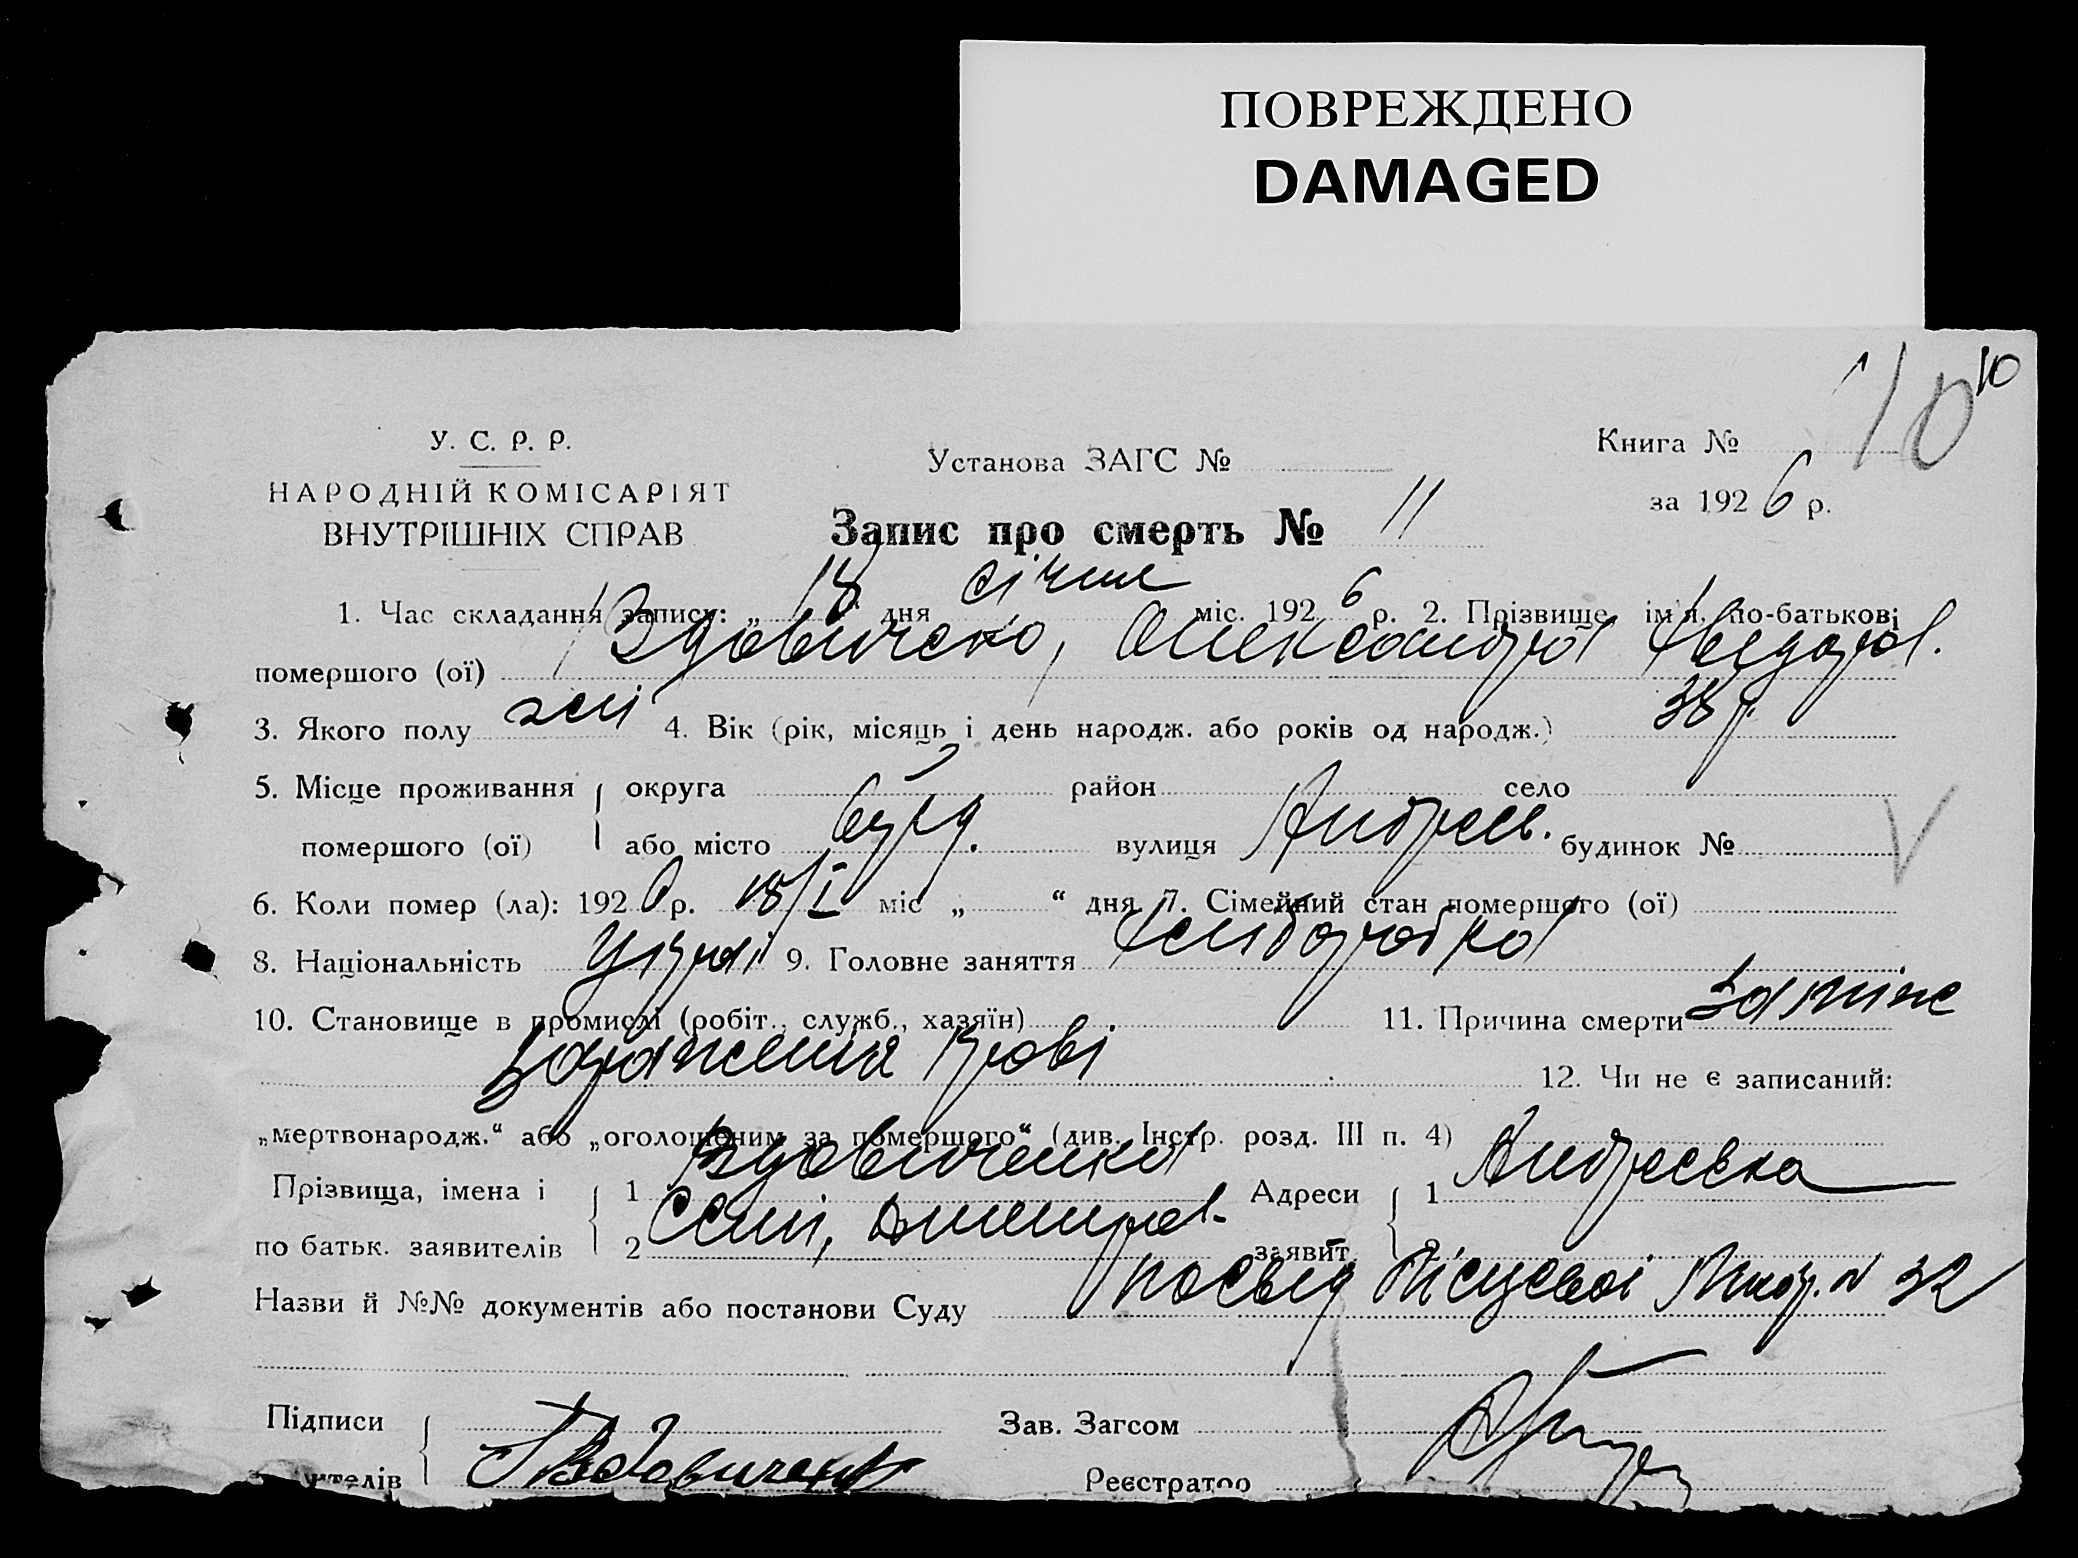 ПОВРЕЖДЕНО
DAMAGED
10 10
У. С. Р. Р.
НАРОДНІЙ КОМІСАРІЯТ
ВНУТРІШНІХ СПРАВ
Установа ЗАГС №
Книга №
за 1926 р.
Запис про смерть № 11
1. Час складання запису: „18“ дня січня міс. 1926 р. 2. Прізвище ім'я, по-батькові
помершого (ої) Вдовиченко, Олександра Федор.
3. Якого полу жін 4. Вік (рік, місяць і день народж. або років од народж.) 38 р.
5. Місце проживання округа район село
помершого (ої) або місто вулиця Андреєв. будинок №
6. Коли помер (ла): 1926 р. 18/I міс „ “ дня 7. Сімейний стан помершого (ої)
8. Національність Укра 9. Головне заняття хліборобка
10. Становище в промислі (робіт., служб., хазяїн) 11. Причина смерти
зараження крові 12. Чи не є записаний:
„мертвонародж.“ або „оголошеним за померщого“ (див. Інстр. розд. III п. 4)
Прізвища, імена і 1 Вдовиченко Адреси 1 Андреєвка
по батьк. заявителів 2 заявит. 2
Назви й №№ документів або постанови Суду посвід Місцевої № 32
Підписи Зав. Загсом
Вдовиченко Реєстратор